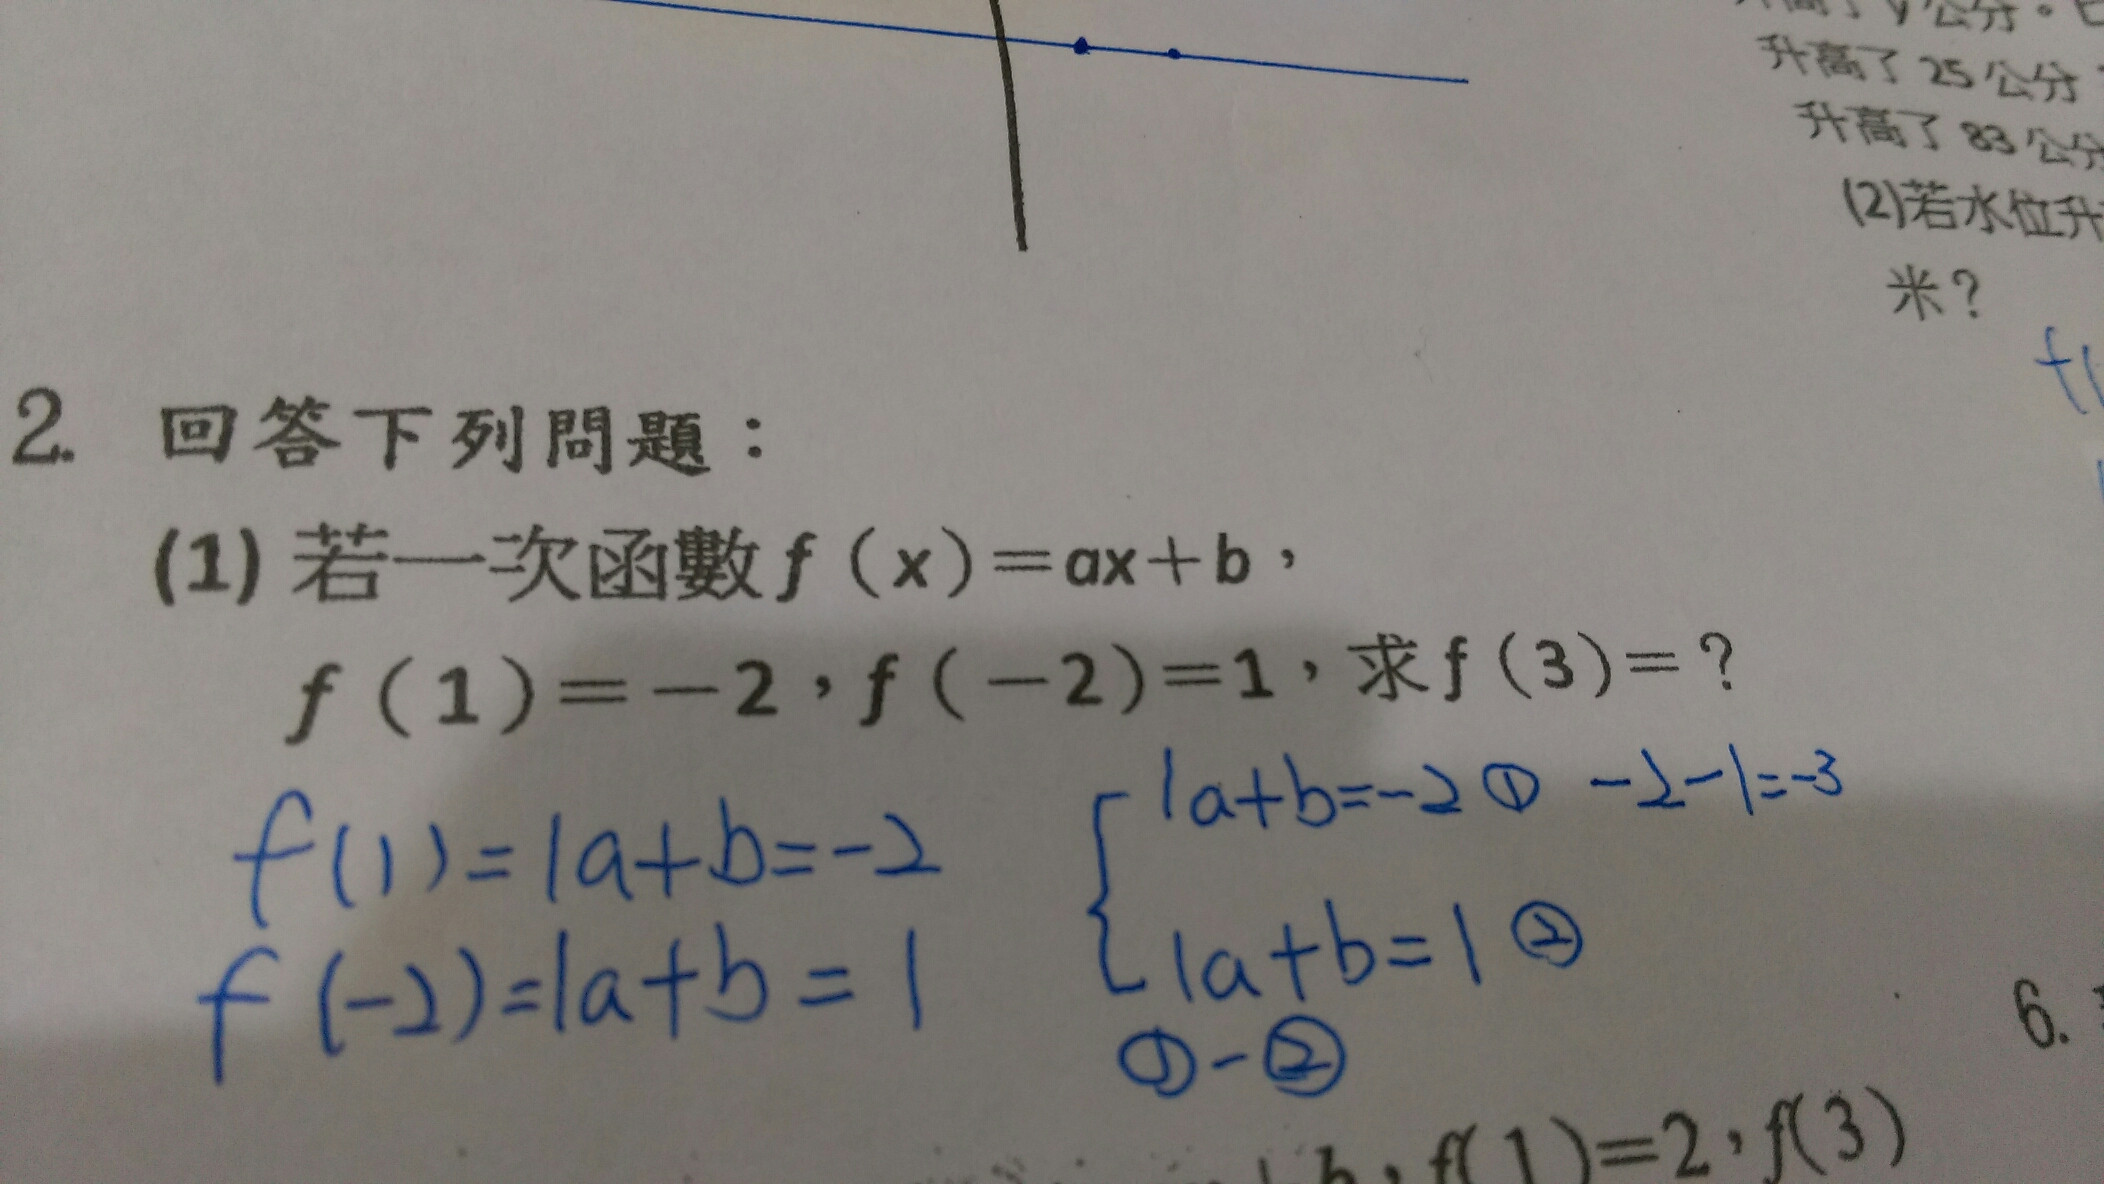 公分。
升高了 25 公分
升高了 83 公分
(2)若水位升
米?
2. 回答下列問題:
(1) 若一次函數f(x)=ax+b,
f(1)=-2,f(-2)=1,求f(3)=?
f(1)=1a+b=-2
f(-2)=1a+b=1
1a+b=-2① -2-1=-3
1a+b=1②
①-②
6.
b,f(1)=2,f(3)